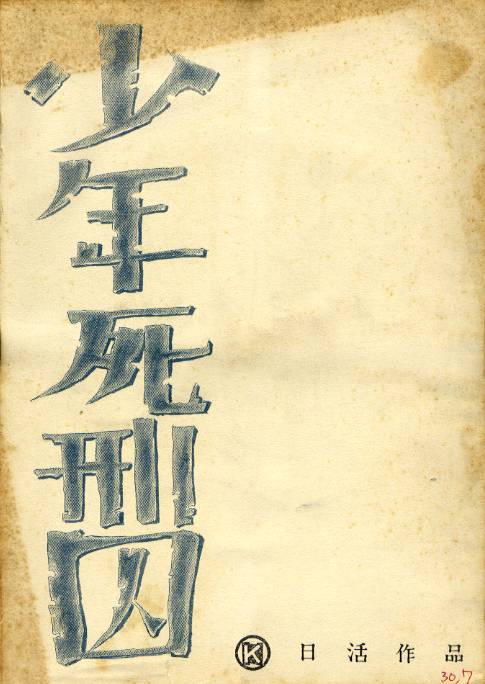 少年死刑囚
K
日活作品
30,7